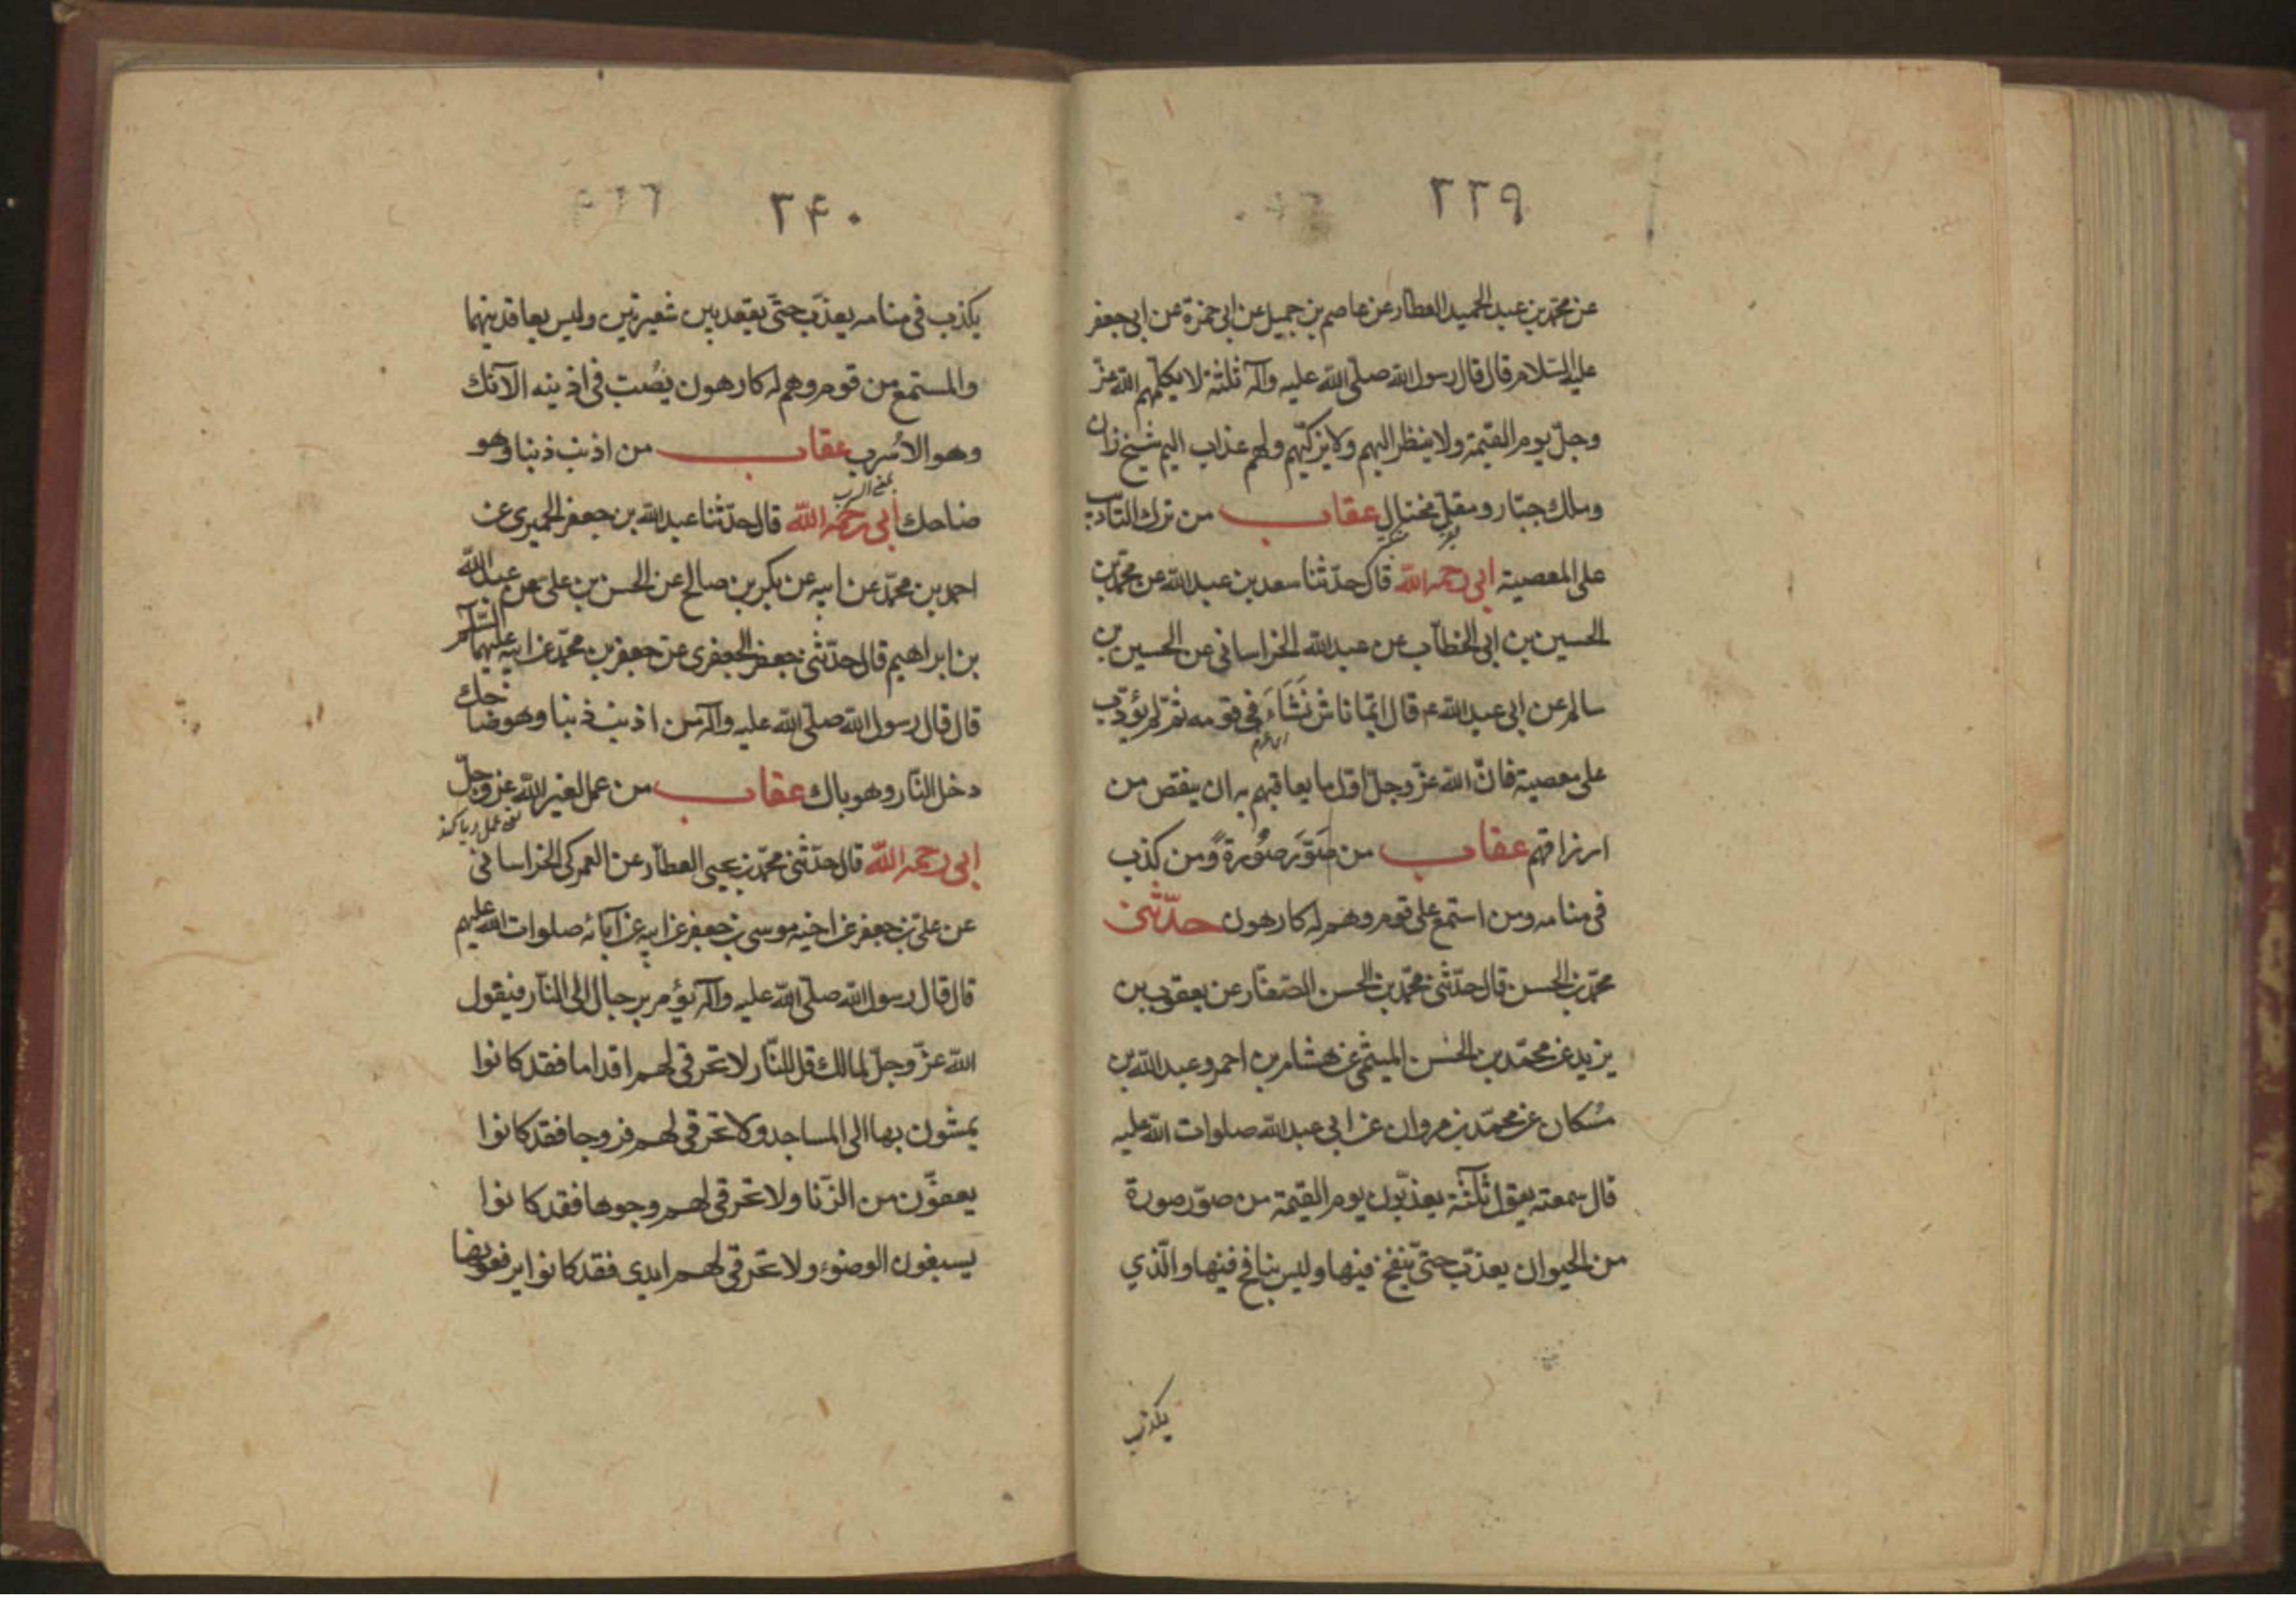 ٢٣٩
عن محمّد بن عبد الحميد العطار عن عاصم بن جميل عن ابى حمزة عن ابى جعفر
عليه السّلام قال قال رسول الله صلّى الله عليه وآله ثلثة لا يكلّمهم الله عزّ
وجلّ يوم القيمة ولا ينظر اليهم ولا يزكّيهم ولهم عذاب اليم شيخ زان
وملك جبّار ومقلّ مختال عقاب من ترك التاديب
على المعصية ابى رحمه الله قال حدّثنا سعد بن عبد الله عن محمّد بن
الحسين بن ابى الخطاب عن عبد الله الخراسانى عن الحسين بن
سالم عن ابى عبد الله ع قال ايّما ناش نَشَاءَ فى قومه ثمّ لم يؤدّب
على معصية فانّ الله عزّ وجلّ اوّل ما يعاقبهم به ان ينقص من
ارزاقهم عقاب من صَوّرَ صُورةً ومن كذب
فى منامه ومن استمع على قوم وهم له كارهون حدّثنى
محمّد بن الحسن قال حدّثنى محمّد بن الحسن الصّفّار عن يعقوب بن
يزيد عن محمّد بن الحسن الميثمى عن هشام بن احمر وعبد الله بن
مُسكان عن محمّد بن مروان عن ابى عبد الله صلوات الله عليه
قال سمعته يقول ثلثة يعذّبون يوم القيمة من صوّر صورة
من الحيوان يعذّب حتىّ ينفخ فيها وليس بنافخ فيها والّذي
يكذب
٢۴٠
يكذب فى منامه يعذّب حتّى يقعد بين شعيرتين وليس بعاقد بينهما
والمستمع من قوم وهم له كارهون يصُبّ فى اذينه الآنك
وهو الاسُرب عقاب من اذنب ذنبا وهو
ضاحك ابى رحمه الله قال حدّثنا عبد الله بن جعفر الحميرى عن
احمد بن محمّد عن ابيه عن بكر بن صالح عن الحسن بن على عن عبد الله
بن ابراهيم قال حدّثنى جعفر الجعفرى عن جعفر بن محمّد عن ابيه عليهما السّلم
قال قال رسول الله صلّى الله عليه وآله من اذنب ذنبا وهو ضاحك
دخل النّار وهو باك عقاب من عمل لغير الله عزّ وجلّ
ابى رحمه الله قال حدّثنى محمّد بن يحيى العطّار عن العمركى الخراسانى
عن علىّ بن جعفر عن اخيه موسى بن جعفر عن ابيه عن آبائه صلوات الله عليهم
قال قال رسول الله صلّى الله عليه وآله يؤمر برجال الى النّار فيقول
الله عزّ وجلّ لمالك قل للنّار لا تحرقى لهم اقداما فقد كانوا
يمشون بها الى المساجد ولا تحرقى لهم فروجا فقد كانوا
يعفّون من الزّنا ولا تحرقى لهم وجوها فقد كانوا
يسبغون الوضوء ولا تحرقى لهم ايدى فقد كانوا يرفعونها